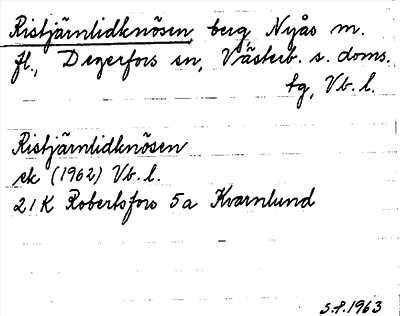 Ristjärnlidknösen, berg Nyås m.
fl., Degerfors sn, Västerb. s. doms.
tg, Vb. l.
Ristjärnlidknösen
ek (1962) Vb. l.
21K Robertsfors 5a Kvarnlund
S.P. 1963